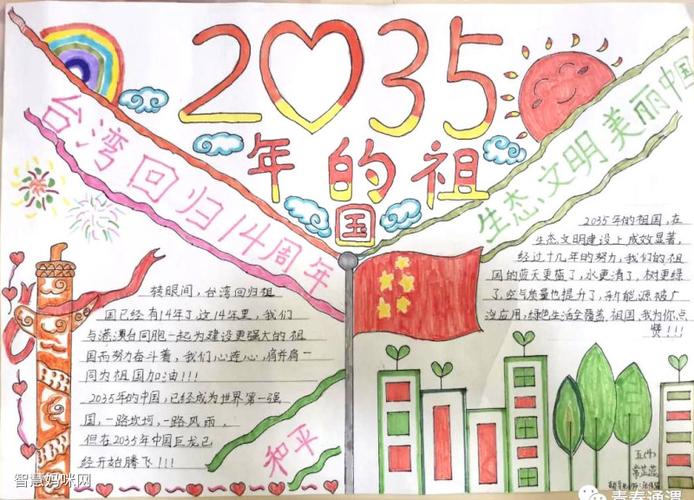 2035
年的祖
国
台湾回归14周年
生态文明美丽中国
转眼间，台湾回归祖
国已经有14年了这14年里，我们
与港澳台同胞一起为建设更强大的祖
国而努力奋斗着，我们心连心，肩并肩一
同为祖国加油！！！
2035年的中国，已经成为世界第一强
国，一路坎坷，一路风雨，
但在2035年中国巨龙已
经开始腾飞！！！
2035年的祖国，在
生态文明建设上成效显著，
经过十几年的努力，我们的祖
国的蓝天更蓝了，水更清了，树更绿
了，空气质量也提升了，新能源被广
泛应用，绿色生活全覆盖，祖国，我为你点
赞！！！
和平
五(4)
智慧妈咪网
青春通渭